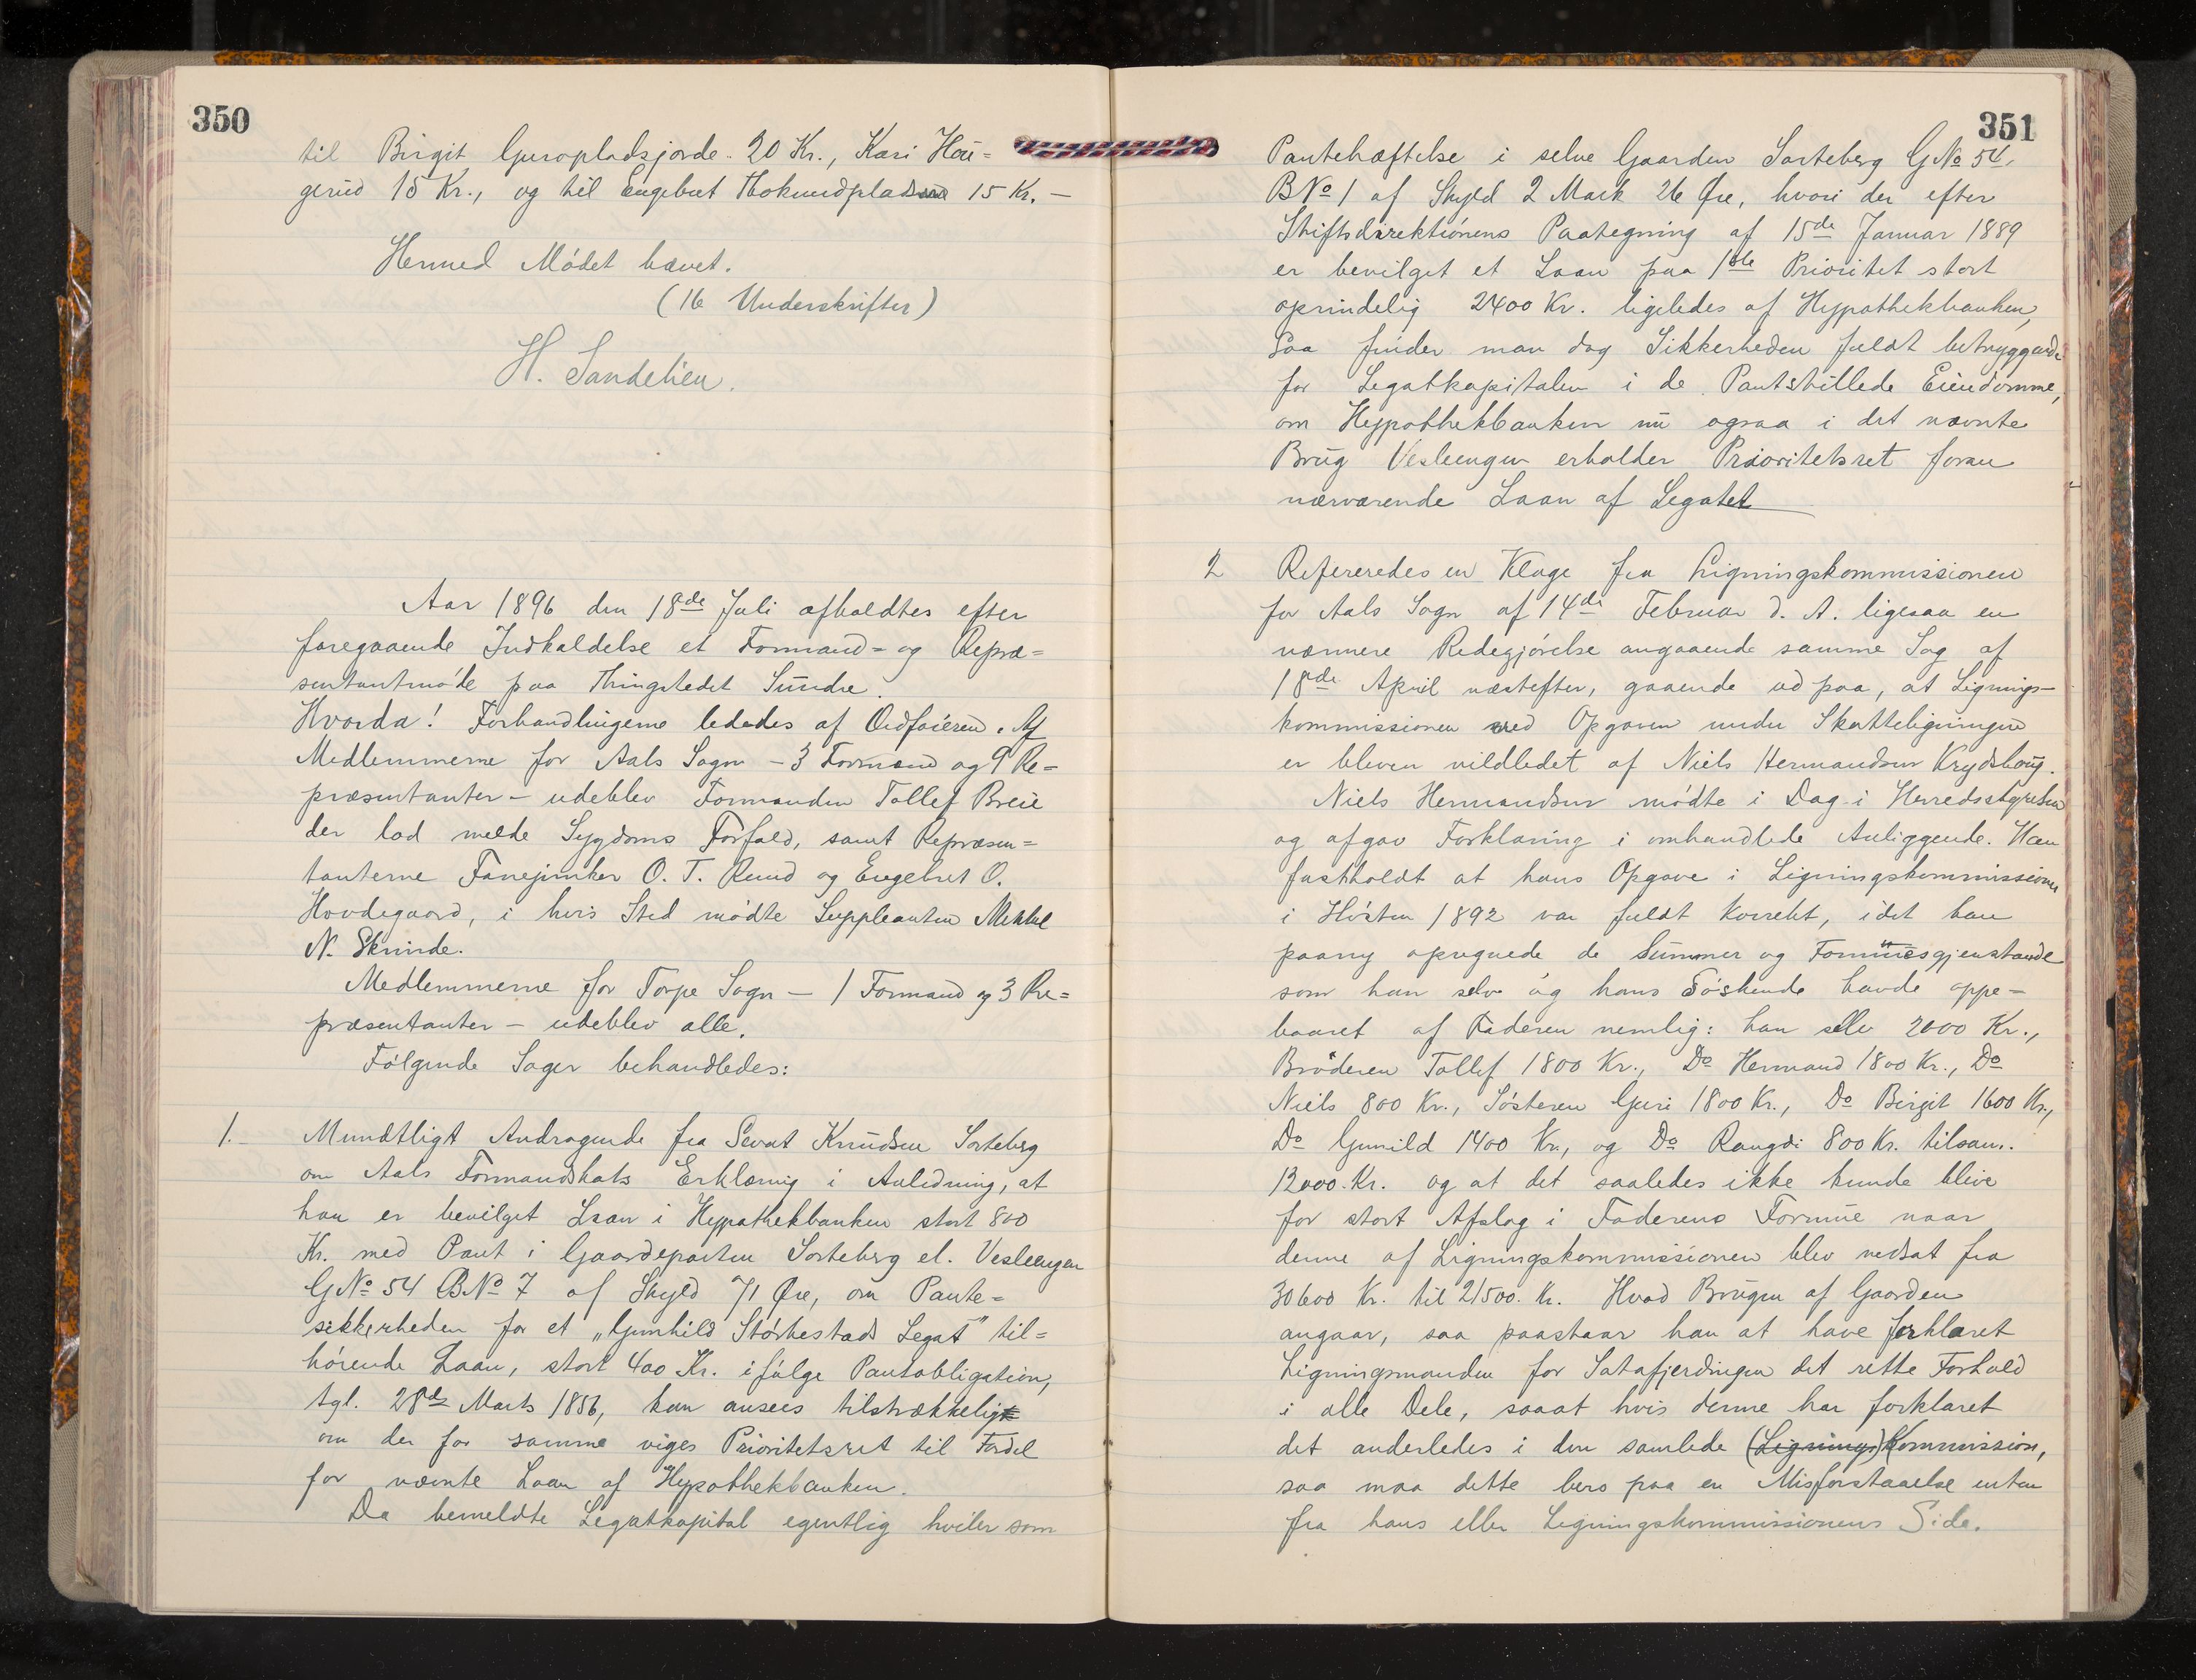 350
til Birgit Guropladsjorde 20 Kr., Kari Hau=
gerud 15 Kr., og til Engebret Thokerudpladsen 15 Kr. —
Hermed Mødet hævet.
(16 Underskrifter)
H. Sandelien.
Aar 1896 den 18de Juli afholdtes efter
foregaaende Indkaldelse et Formand= og Repræ=
sentantmøde paa Thingstedet Sundre.
Hvorda! Forhandlingerne lededes af Ordføreren. Af
Medlemmerne for Aals Sogn — 3 Formænd og 9 Re=
præsentanter — udeblev Formanden Tollef Breie
der lod melde Sygdoms Forfald, samt Repræsen=
tanterne Fanejunker O. T. Ruud og Engebret O.
Hovdegaard, i hvis Sted mødte Suppleanten Mekkel
N. Skrinde.
Medlemmerne for Torpe Sogn — 1 Formand og 3 Re=
præsentanter — udeblev alle.
Følgende Sager behandledes:
1. Mundtligt Andragende fra Sevat Knudsen Sorteberg
om Aals Formandskabs Erklæring i Anledning, at
han er bevilget Laan i Hypothekbanken stort 800
Kr. med Pant i Gaardeparten Sorteberg el. Vesleengen
GNo 54 BNo 7 af Skyld 71 Øre, om Pante=
sikkerheden for et „Gunhild Størhestads Legat" til=
hørende Laan, stort 400 Kr. ifølge Pantobligation,
tgl. 28de Marts 1856, kan ansees tilstrækkelig
om der for samme viges Prioritetsret til Fordel
for nævnte Laan af Hypothekbanken.
Da bemeldte Legatkapital egentlig hviler som
351
Pantehæftelse i selve Gaarden Sorteberg GNo 54,
BNo 1 af Skyld 2 Mark 26 Øre, hvori der efter
Stiftsdirektionens Paategning af 15de Januar 1889
er bevilget et Laan paa 1ste Prioritet stort
oprindelig 2400 Kr. ligeledes af Hypothekbanken,
saa finder man dog Sikkerheden fuldt betryggende
for Legatkapitalen i de Pantstillede Eiendomme,
om Hypothekbanken nu ogsaa i det nævnte
Brug Vesleengen erholder Prioritetsret foran
nærværende Laan af Legatet
2 Refereredes en Klage fra Ligningskommissionen
for Aals Sogn af 14de Februar d. A. ligesaa en
nærmere Redegjørelse angaaende samme Sag af
18de April næstefter, gaaende ud paa, at Lignings-
kommissionen ved Opgaven under Skatteligningen
er bleven vildledet af Niels Hermandsen Krydshoug.
Niels Hermandsen mødte i Dag i Herredsstyrelsen
og afgav Forklaring i omhandlede Anliggende. Han
fastholdt at hans Opgave i Ligningskommissionen
i Høsten 1892 var fuldt korrekt, idet han
paany opregnede de Summer og Formuesgjenstande
som han selv og hans Søskende havde oppe=
baaret af Faderen nemlig: han selv 2000 Kr.,
Broderen Tollef 1800 Kr., Do Hermand 1800 Kr., Do
Niels 800 Kr., Søsteren Guri 1800 Kr., Do Birgit 1600 Kr.,
Do Gunild 1400 Kr., og Do Rangdi 800 Kr. tilsam.
12000. Kr. og at det saaledes ikke kunde blive
for stort Afslag i Faderens Formue naar
denne af Ligningskommissionen blev nedsat fra
30600 Kr. til 21500. Kr. Hvad Brugen af Gaarden
angaar, saa paastaar han at have forklaret
Ligningsmanden for Satafjerdingen det rette Forhold
i alle Dele, saaat hvis denne har forklaret
det anderledes i den samlede (Lignings) Kommission,
saa maa dette bero paa en Misforstaaelse enten
fra hans eller Ligningskommissionens Side.